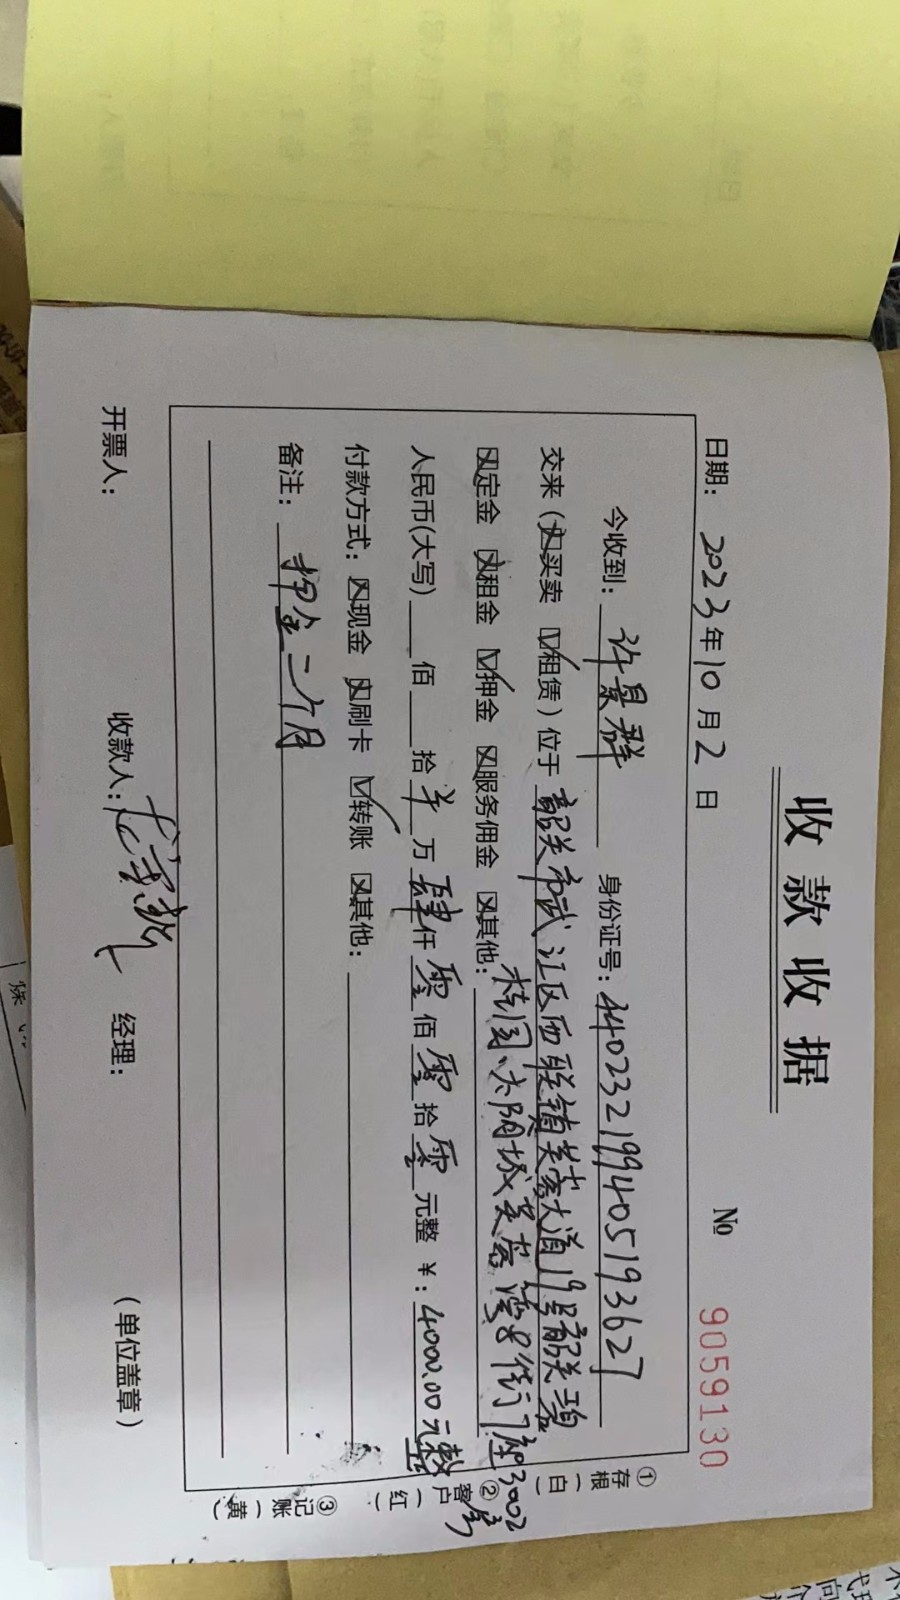 收款收据
№ 9059130
日期：2023年10月2日
今收到：许景群 身份证号：440232199405193627
交来（☒买卖 ☑租赁）位于韶关市武江区西联镇芙蓉大道19号韶关碧
桂园·太阳城芙蓉湾8街7座3002房
☒定金 ☒租金 ☑押金 ☒服务佣金 ☒其他：
人民币(大写) 佰 拾 万肆仟零佰零拾零元整 ￥：4000.00元整
付款方式：☒现金 ☒刷卡 ☑转账 ☒其他：
备注：押金二个月
开票人： 收款人： 经理： （单位盖章）
①存根（白）
②客户（红）
③记账（黄）